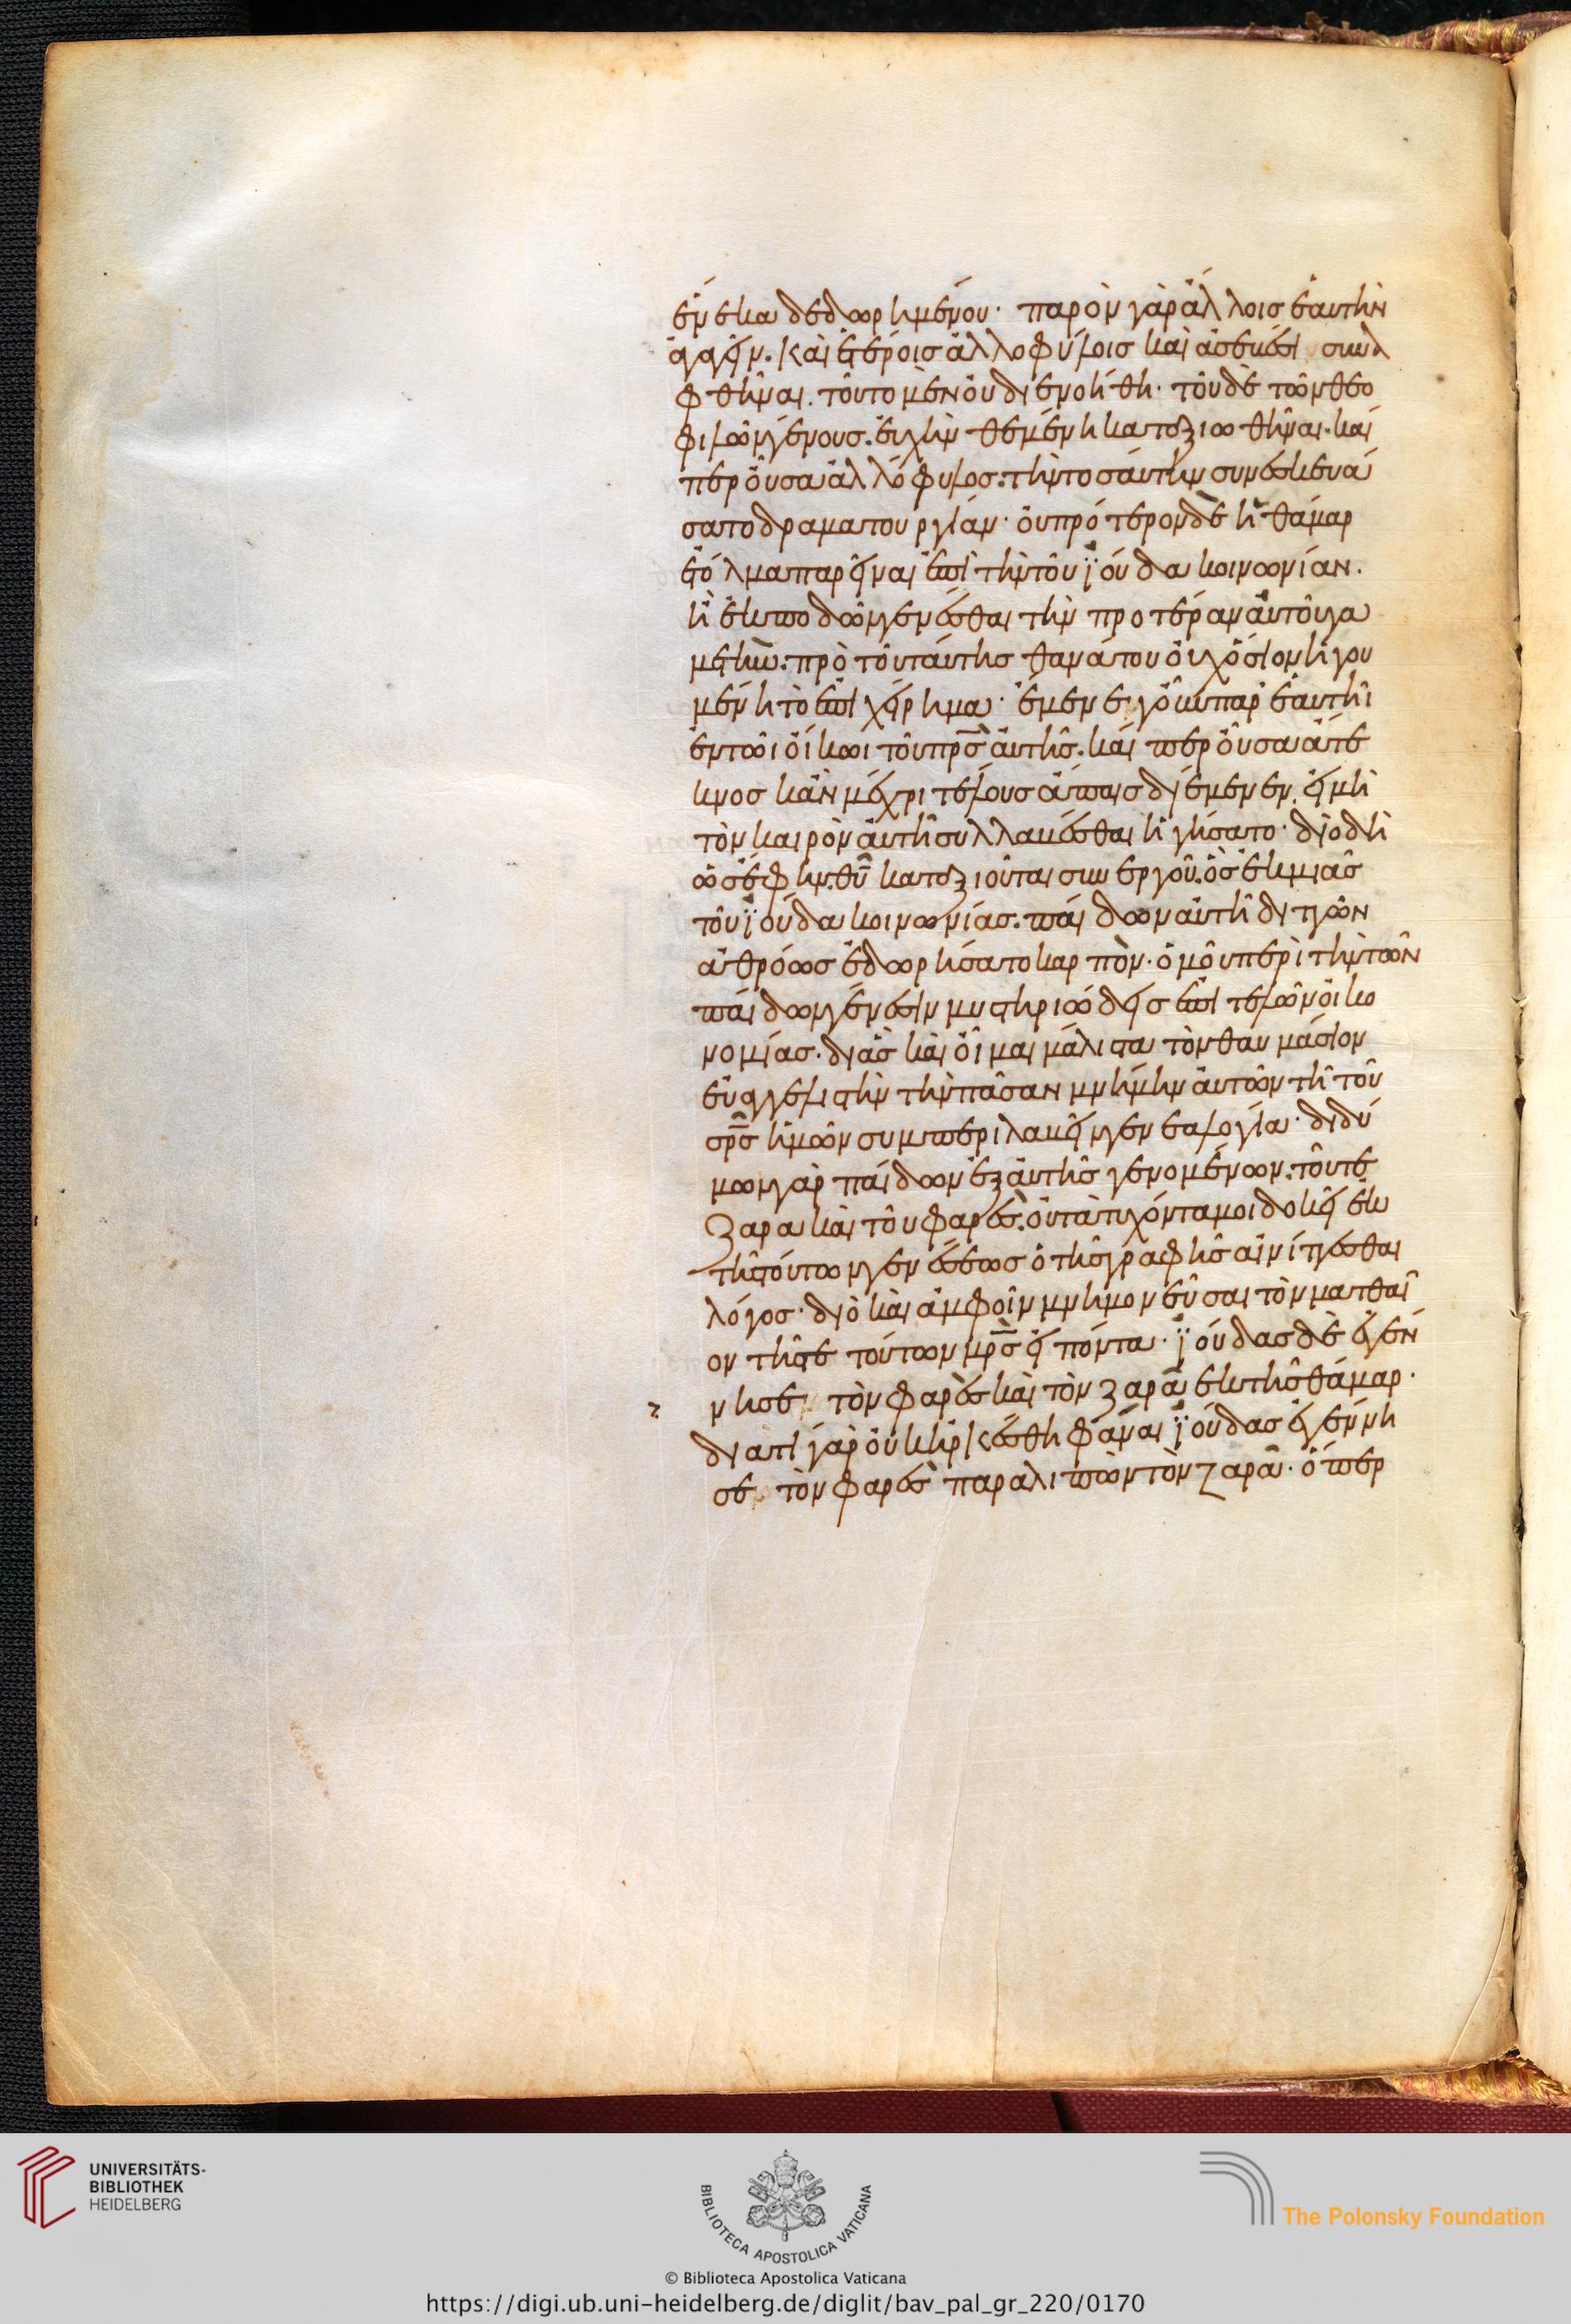 ἕνεκα δεδωρημένου· παρὸν γὰρ ἄλλοις ἑαυτὴν
ἀγαγεῖν. καὶ ἑτέροις ἀλλοφύλοις καὶ ἀσεβέσι συνα
φθῆναι. τοῦτο μὲν οὐ διενοήθη· τοῦ δὲ τῶν θεο
φιλῶν γένους. εὐχὴν θεμένη καταξιωθῆναι. καί
περ οὖσα ἀλλόφυλος. τὴν τοσαύτην συνεσκευά
σατο δραματουργίαν· οὐ πρότερον δὲ ἡ θάμαρ
ἐτόλμα παρεῖναι ἐπὶ τὴν τοῦ ϊούδα κοινωνίαν.
ἢ ἐκποδῶν γενέσθαι τὴν προτέραν αὐτοῦ γα
μετήν. πρὸ τοῦ ταύτης θανάτου οὐχ ὅσιον ἡγου
μένη τὸ ἐπιχείρημα· ἔμενε γοῦν παρ ἑαυτῆι
ἐν τῶι οἴκωι τοῦ πρ̅σ αὐτῆς. καί περ οὖσα ἄτε
κνος κἂν μέχρι τέλους ἄπαις διέμενεν, εἰ μὴ
τὸν καιρὸν αὐτὴ συλλαβέσθαι ἡγήσατο· διὸ δὴ
ὡς ἔφην. θ̅υ καταξιοῦται συνεργοῦ. ὃς ἐκ μιᾶς
τοῦ ϊούδα κοινωνίας. παίδων αὐτῆ διττῶν
ἀθρόως ἐδωρήσατο καρπὸν· ὁμοῦ περὶ τὴν τῶν
παίδων γένεσιν μυστηριώδεις ἐπιτελῶν οἰκο
νομίας. δι ἃς καὶ οἶμαι μάλιστα τὸν θαυμάσιον
εὐαγγελιστὴν τὴν πᾶσαν μνήμην αὐτῶν τῆ τοῦ
σρ̅σ ἡμῶν συμπεριλαβεῖν γενεαλογία· διδύ
μων γὰρ παίδων ἐξ αὐτῆς γενομένων. τοῦ τε
ζαρα καὶ τοῦ φαρὲς. οὐ τὰ τυχόντα μοι δοκεῖ ἐκ
τῆς τούτων γενέσεως ὁ τῆς γραφῆς αἰνίττεσθαι
λόγος· διὸ καὶ ἀμφοῖν μνημονεῦσαι τὸν ματθαῖ
ον τῆς τε τούτων μρ̅σ εἰπόντα· ϊούδας δὲ ἐγέν
νησε τὸν φαρὲς καὶ τὸν ζαρᾶ ἐκ τῆς θάμαρ·
διατί γὰρ οὐκ ἠρκέσθη φάναι ϊούδας ἐγέννη
σε τὸν φαρὲς παραλιπὼν τὸν ζαρᾶ· ὅπερ
UNIVERSITÄTS-
BIBLIOTHEK
HEIDELBERG
BIBLIOTECA APOSTOLICA VATICANA
The Polonsky Foundation
© Biblioteca Apostolica Vaticana
https://digi.ub.uni-heidelberg.de/diglit/bav_pal_gr_220/0170